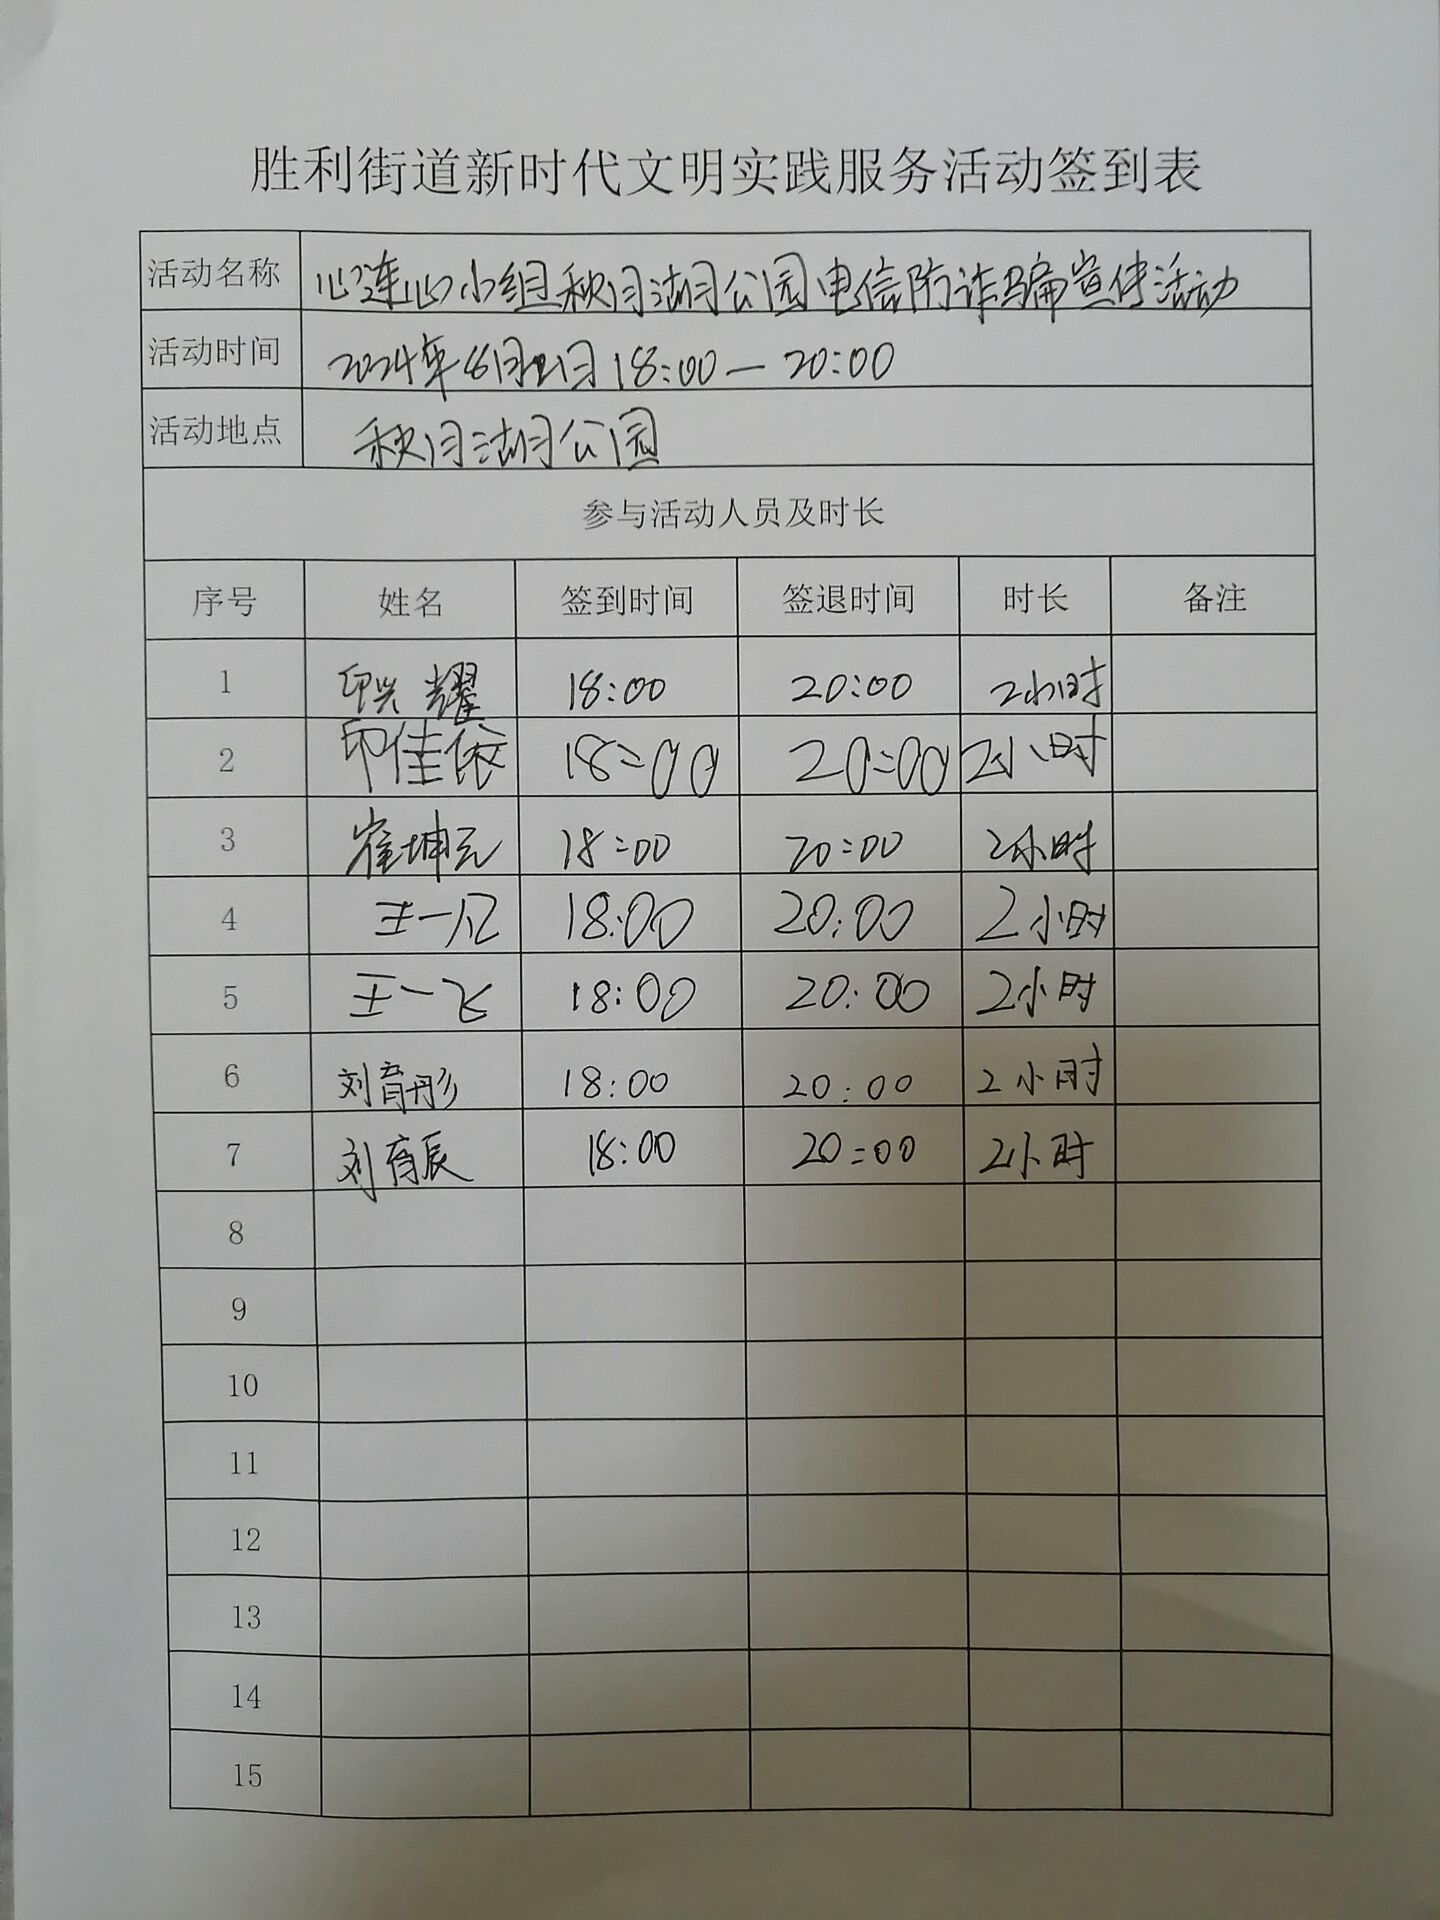 胜利街道新时代文明实践服务活动签到表
活动名称 心连心小组秋月湖公园电信防诈骗宣传活动
活动时间 2024年 日18:00—20:00
活动地点 秋月湖公园
参与活动人员及时长
序号 姓名 签到时间 签退时间 时长 备注
1 印兴耀 18:00 20:00 2小时
2 印佳依 18:00 20:00 2小时
3 崔坤元 18:00 20:00 2小时
4 王一亿 18:00 20:00 2小时
5 王一飞 18:00 20:00 2小时
6 刘育彤 18:00 20:00 2小时
7 刘育辰 18:00 20:00 2小时
8
9
10
11
12
13
14
15